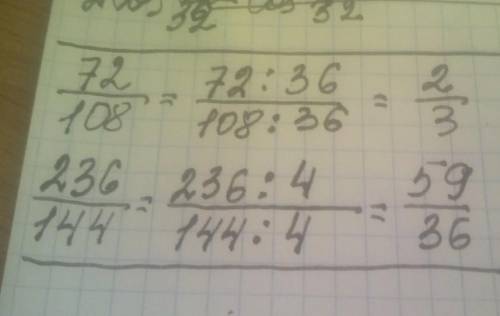 32 32
72/108 = 72:36/108:36 = 2/3
236/144 = 236:4/144:4 = 59/36